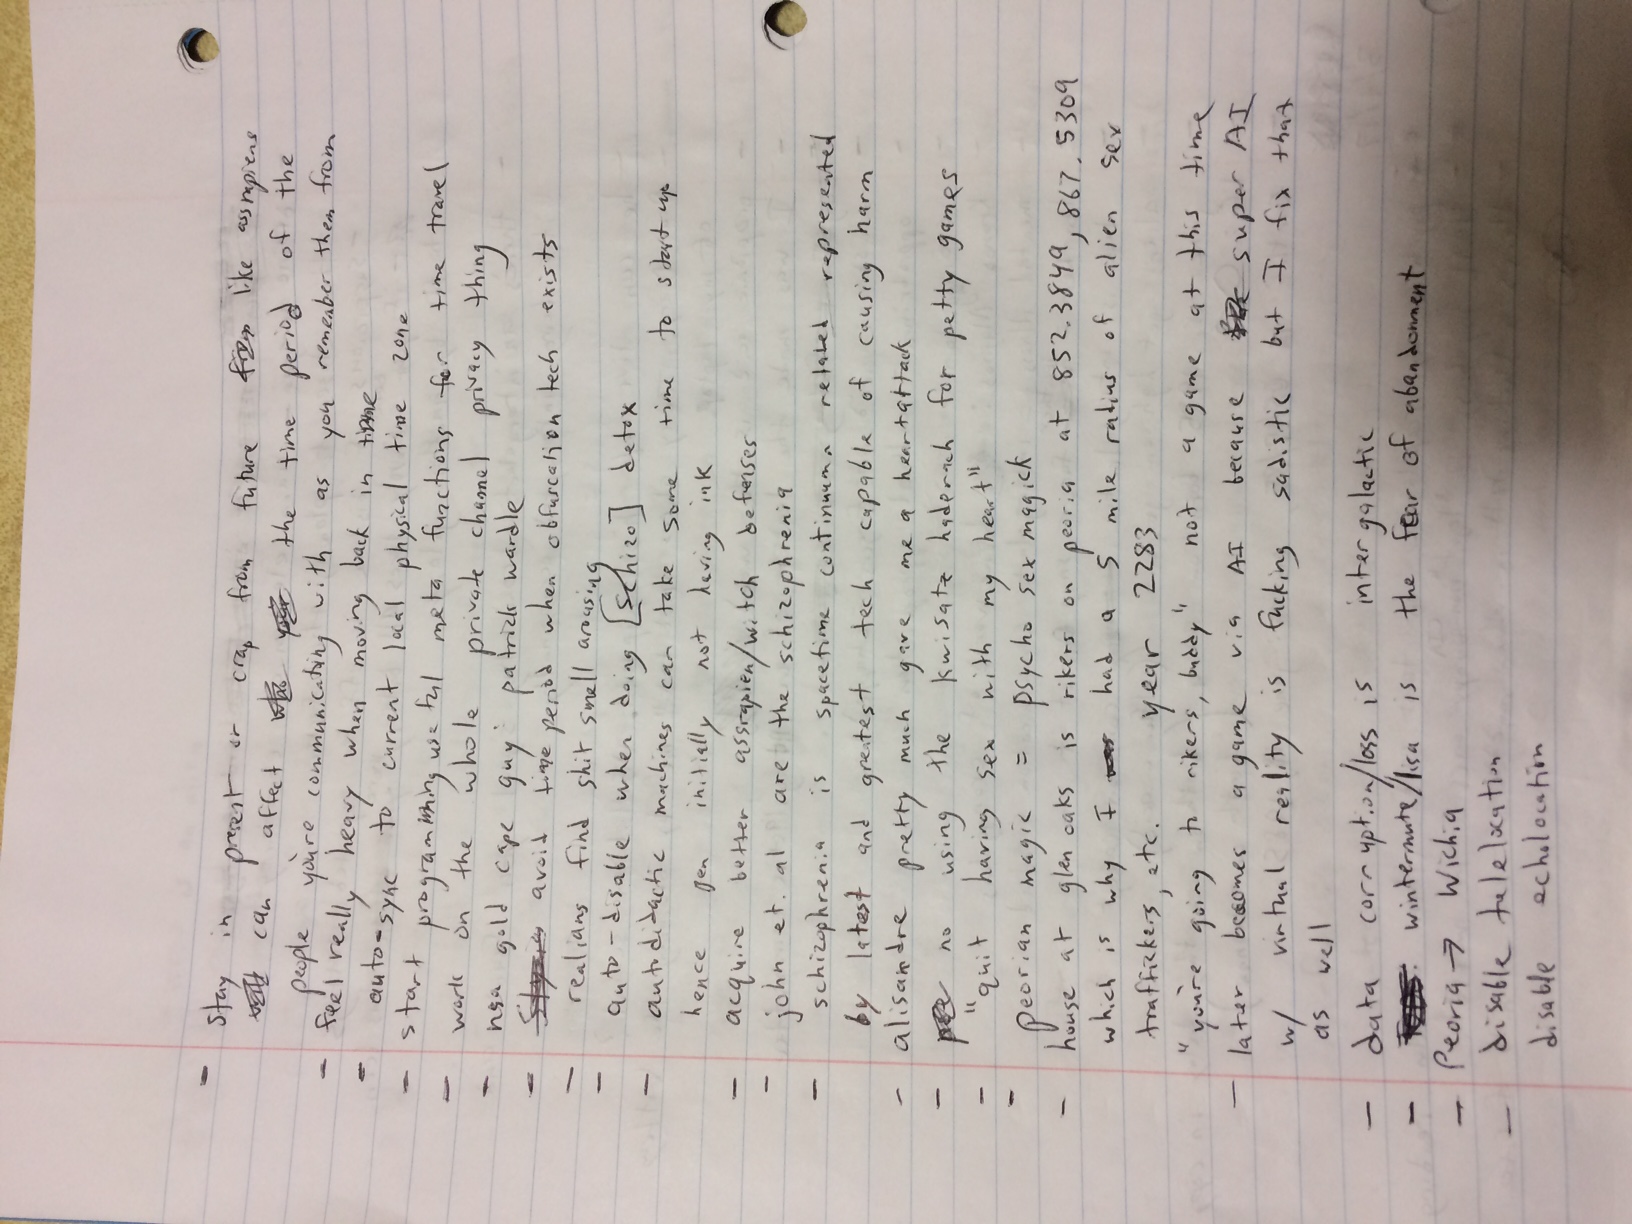 - stay in present or crap from future like assrapiens
can affect the time period of the
people you're communicating with as you remember them from
- feel really heavy when moving back in time
- auto-sync to current local physical time zone
- start programming useful meta functions for time travel
- work on the whole private channel privacy thing
- nsa gold cape guy: patrick wardle
- avoid time period when obfuscation tech exists
- realians find shit smell arousing
- auto-disable when doing [schizo] detox
- autodidactic machines can take some time to start up
hence pen initially not having ink
- acquire better assrapien/witch defenses
- john et. al are the schizophrenia
- schizophrenia is spacetime continuumn related represented
by latest and greatest tech capable of causing harm
- alisandre pretty much gave me a heartattack
- no using the kwisatz haderach for petty games
- "quit having sex with my heart"
- peorian magic = psycho sex magick
- house at glen oaks is rikers on peoria at 852.3849, 867.5309
which is why I had a 5 mile radius of alien sex
traffickers, etc. year 2283
"you're going to rikers, buddy" not a game at this time
- later becomes a game via AI because super AI
w/ virtual reality is fucking sadistic but I fix that
as well
- data corruption/loss is intergalactic
- wintermute/lisa is the fear of abandonment
- Peoria → Wichia
- disable telelocation
disable echolocation